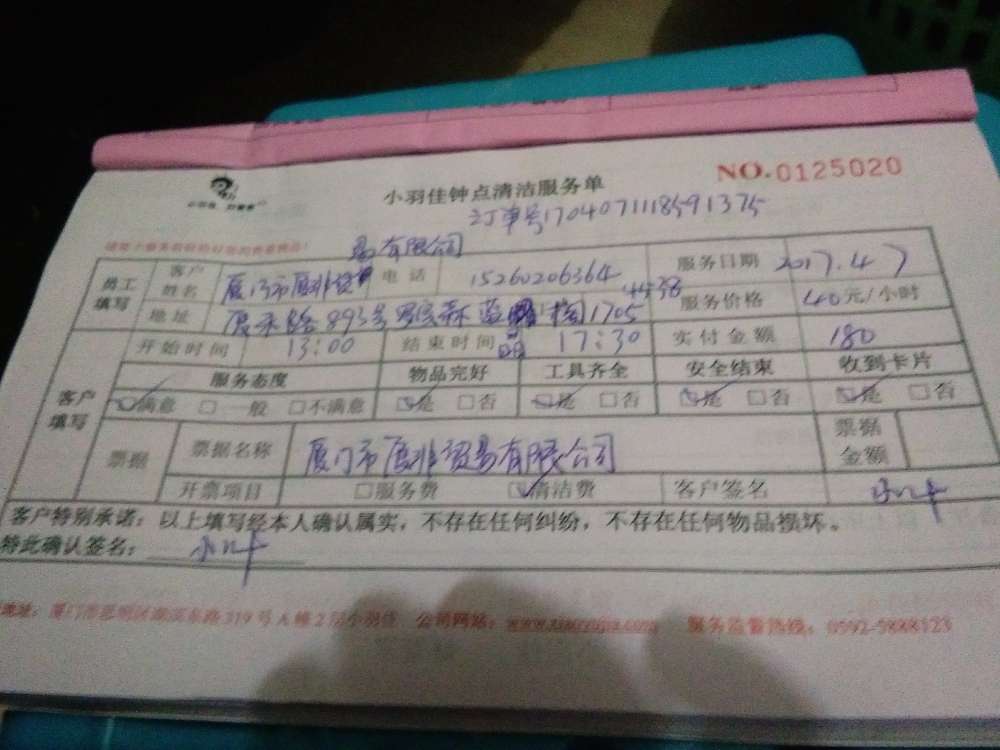 小羽佳钟点清洁服务单
NO.0125020
订单号1704071118591375
易有限公司
员工填写 客户姓名 厦门市厦非贸 电话 15260206364 服务日期 2017.4 7
地址 893号 1705 4456 服务价格 40元/小时
开始时间 13:00 结束时间 17:30 实付金额 180
客户填写 服务态度 物品完好 工具齐全 安全结束 收到卡片
满意 □一般 □不满意 是 □否 是 □否 是 □否 是 □否
票据 票据名称 厦门市厦非贸易有限公司 票据金额
开票项目 □服务费 清洁费 客户签名
客户特别承诺:以上填写经本人确认属实,不存在任何纠纷,不存在任何物品损坏。
特此确认签名:
地址:厦门市思明区湖滨东路319号A幢2层小羽佳 公司网站:www.xiaoyujia.com 服务监督热线:0592-5888123